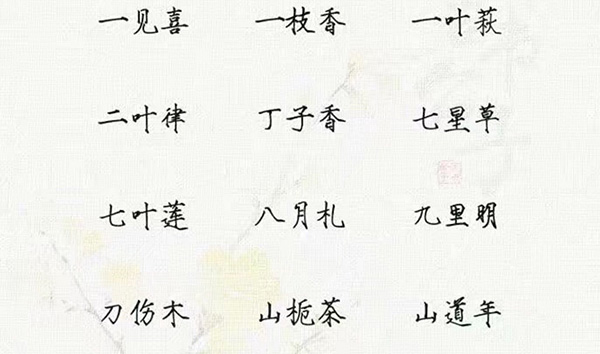 一见喜 一枝香 一叶萩
二叶葎 丁子香 七星草
七叶莲 八月札 九里明
刀伤木 山栀茶 山道年